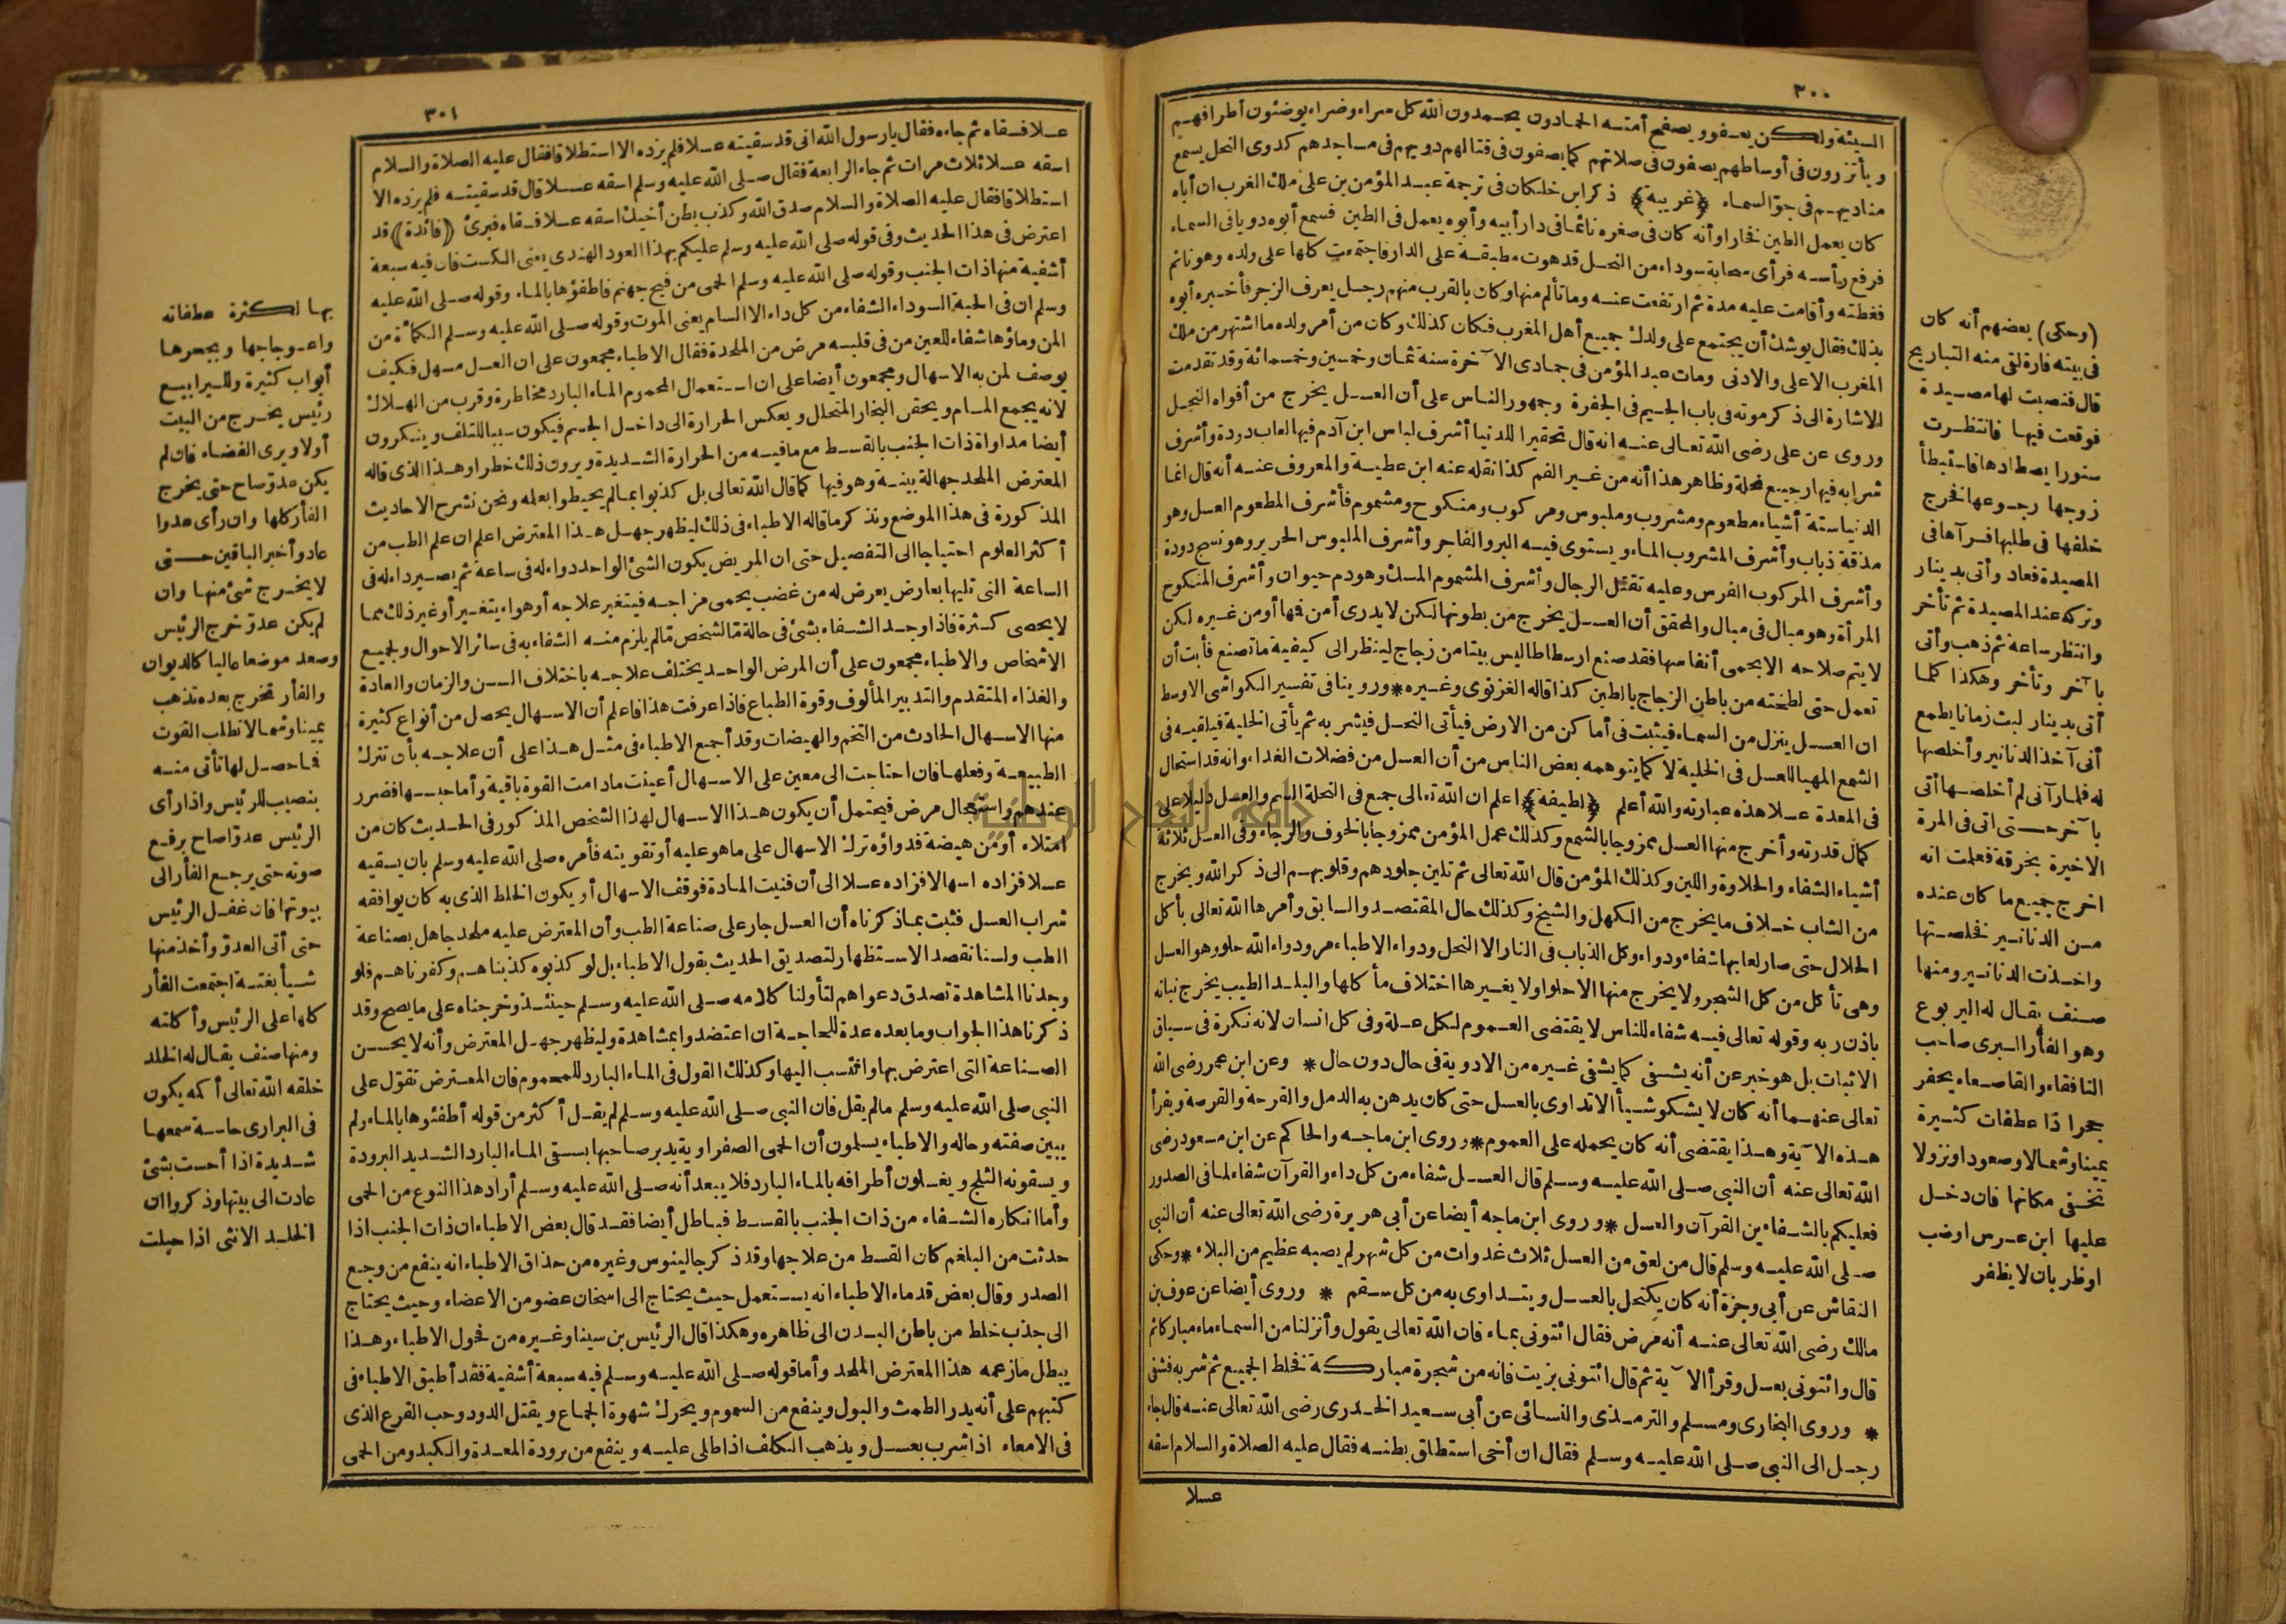 ٣٠٠
السيئة ولكن يعفو ويصفح أمته الحمادون يحمدون الله كل سراء وضراء يوضئون أطرافهم
ويأتزرون في أوساطهم يصفون في صلاتهم كما يصفون في قتالهم دويهم في مساجدهم كدوى النحل يسمع
مناديهم في جو السماء ﴿غريبة﴾ ذكر ابن خلكان في ترجمة عبد المؤمن بن على ملك الغرب ان أباه
كان يعمل الطين فخارا وأنه كان في صغره نائما في دار أبيه وأبوه يعمل في الطين فسمع أبوه دويا في السماء
فرفع رأسه فرأى سحابة سوداء من النحل قد هوت مطبقة على الدار فاجتمعت كلها على ولده وهو نائم
فغطته وأقامت عليه مدة ثم ارتفعت عنه وما تألم منها وكان بالقرب منهم رجل يعرف الزجر فأخبره أبوه
بذلك فقال يوشك أن يجتمع على ولدك جميع أهل المغرب فكان كذلك وكان من أمر ولده ما اشتهر من ملك
المغرب الاعلى والادنى ومات عبد المؤمن في جمادى الآخرة سنة ثمان وخمسين وخمسمائة وقد تقدمت
الاشارة الى ذكر موته في باب الجيم في الجفرة وجمهور الناس على أن العسل يخرج من أفواه النحل
وروى عن على رضى الله تعالى عنه انه قال تحقيرا للدنيا أشرف لباس ابن آدم فيها لعاب دودة وأشرف
شرابه فيها رجيع نحلة وظاهر هذا أنه من غير الفم كذا نقله عنه ابن عطية والمعروف عنه أنه قال انما
الدنيا ستة أشياء مطعوم ومشروب وملبوس ومركوب ومنكوح ومشموم فأشرف المطعوم العسل وهو
مذقة ذباب وأشرف المشروب الماء ويستوى فيه البر والفاجر وأشرف الملبوس الحرير وهو نسج دودة
وأشرف المركوب الفرس وعليه تقتل الرجال وأشرف المشموم المسك وهو دم حيوان وأشرف المنكوح
المرأة وهو مبال في مبال والمحقق أن العسل يخرج من بطونها لكن لا يدرى أمن فمها أو من غيره لكن
لا يتم صلاحه الا بحمى أنفاسها فقد صنع ارسطاطاليس بيتا من زجاج لينظر الى كيفية ما تصنع فأبت أن
تعمل حتى لطخته من باطن الزجاج بالطين كذا قاله الغزنوى وغيره * وروينا في تفسير الكواشى الاوسط
ان العسل ينزل من السماء فيثبت في أماكن من الارض فيأتى النحل فيشربه ثم يأتى الخلية فيلقيه في
الشمع المهيا للعسل في الخلية لا كما يتوهمه بعض الناس من أن العسل من فضلات الغداء وانه قد استحال
في المعدة عسلا هذه عبارته والله أعلم ﴿لطيفة﴾ اعلم ان الله تعالى جمع في النحلة السم والعسل دليلا على
كمال قدرته وأخرج منها العسل ممزوجا بالشمع وكذلك عمل المؤمن ممزوجا بالخوف والرجاء وفى العسل ثلاثة
أشياء الشفاء والحلاوة واللين وكذلك المؤمن قال الله تعالى ثم تلين جلودهم وقلوبهم الى ذكر الله ويخرج
من الشاب خلاف ما يخرج من الكهل والشيخ وكذلك حال المقتصد والسابق وأمرها الله تعالى بأكل
الحلال حتى صار لعابها شفاء ودواء وكل الذباب في النار الا النحل ودواء الاطباء مر ودواء الله حلو وهو العسل
وهى تأكل من كل الشجر ولا يخرج منها الا حلوا ولا يغيرها اختلاف مأكلها والبلد الطيب يخرج نباته
باذن ربه وقوله تعالى فيه شفاء للناس لا يقتضى العموم لكل علة وفى كل انسان لانه نكرة في سياق
الاثبات بل هو خبر عن أنه يشفى كما يشفى غيره من الادوية في حال دون حال * وعن ابن عمر رضى الله
تعالى عنهما أنه كان لا يشكو شيأ الا تداوى بالعسل حتى كان يدهن به الدمل والقرحة والقرصة ويقرأ
هذه الآية وهذا يقتضى أنه كان يحمله على العموم * وروى ابن ماجه والحاكم عن ابن مسعود رضى
الله تعالى عنه أن النبي صلى الله عليه وسلم قال العسل شفاء من كل داء والقرآن شفاء لما في الصدور
فعليكم بالشفاءين القرآن والعسل * وروى ابن ماجه أيضا عن أبى هريرة رضى الله تعالى عنه أن النبي
صلى الله عليه وسلم قال من لعق من العسل ثلاث غدوات من كل شهر لم يصبه عظيم من البلاء * وحكى
النقاش عن أبى وجزة أنه كان يكتحل بالعسل ويتداوى به من كل سقم * وروى أيضا عن عوف بن
مالك رضى الله تعالى عنه أنه مرض فقال ائتونى بماء فان الله تعالى يقول وأنزلنا من السماء ماء مباركا ثم
قال وائتونى بعسل وقرأ الآية ثم قال ائتونى بزيت فانه من شجرة مباركة فخلط الجميع ثم شربه فشفى
* وروى البخارى ومسلم والترمذى والنسائى عن أبى سعيد الخدرى رضى الله تعالى عنه قال جاء
رجل الى النبي صلى الله عليه وسلم فقال ان أخى استطلق بطنه فقال عليه الصلاة والسلام اسقه
عسلا
(وحكى) بعضهم أنه كان
في بيته فارة لقى منه التباريح
قال فنصبت لها مصيدة
فوقعت فيها فانتظرت
سنورا يصطادها فاستبطأ
زوجها رجوعها فخرج
خلفها في طلبها فرآها في
المصيدة فعاد وأتى بدينار
وتركه عند المصيدة ثم تأخر
وانتظر ساعة ثم ذهب وأتى
بآخر وتأخر وهكذا كلما
أتى بدينار لبث زمانا يطمع
أنى آخذ الدنانير وأخلصها
له فلما رآنى لم أخلصها أتى
بآخر حتى اتى في المرة
الاخيرة بخرقة فعلمت انه
اخرج جميع ما كان عنده
من الدنانير فخلصتها
واخذت الدنانير ومنها
صنف يقال له اليربوع
وهو الفأر البرى صاحب
النافقاء والقاصعاء يحفر
جحرا ذا عطفات كثيرة
يمينا وشمالا وصعودا ونزولا
تخفى مكانها فان دخل
عليها ابن عرس اوضب
اوظربان لا يظفر
٣٠١
عسلا فسقاه ثم جاءه فقال يا رسول الله انى قد سقيته عسلا فلم يزده الا استطلاقا فقال عليه الصلاة والسلام
اسقه عسلا ثلاث مرات ثم جاء الرابعة فقال صلى الله عليه وسلم اسقه عسلا قال قد سقيته فلم يزده الا
استطلاقا فقال عليه الصلاة والسلام صدق الله وكذب بطن أخيك اسقه عسلا فسقاه فبرئ ﴿فائدة﴾ قد
اعترض في هذا الحديث وفى قوله صلى الله عليه وسلم عليكم بهذا العود الهندى يعنى الكست فان فيه سبعة
أشفية منها ذات الجنب وقوله صلى الله عليه وسلم الحمى من فيح جهنم فاطفؤها بالماء وقوله صلى الله عليه
وسلم ان في الحبة السوداء الشفاء من كل داء الا السام يعنى الموت وقوله صلى الله عليه وسلم الكمأة من
المن وماؤها شفاء للعين من في قلبه مرض من الملحدة فقال الاطباء مجمعون على ان العسل مسهل فكيف
يوصف لمن به الاسهال ومجمعون أيضا على ان استعمال المحموم الماء البارد مخاطرة وقرب من الهلاك
لانه يجمع المسام ويحقن البخار المتحلل ويعكس الحرارة الى داخل الجسم فيكون سببا للتلف وينكرون
أيضا مداواة ذات الجنب بالقسط مع ما فيه من الحرارة الشديدة ويرون ذلك خطرا وهذا الذى قاله
المعترض الملحد جهالة بينة وهو فيها كما قال الله تعالى بل كذبوا بما لم يحيطوا بعلمه ونحن نشرح الاحاديث
المذكورة في هذا الموضع ونذكر ما قاله الاطباء في ذلك ليظهر جهل هذا المعترض اعلم ان علم الطب من
أكثر العلوم احتياجا الى التفصيل حتى ان المريض يكون الشئ الواحد دواء له في ساعة ثم يصير داء له في
الساعة التى تليها بعارض يعرض له من غضب يحمى مزاجه فيتغير علاجه أو هواء يتغير أو غير ذلك مما
لا يحصى كثرة فاذا وجد الشفاء بشئ في حالة ما لشخص ما لم يلزم منه الشفاء به في سائر الاحوال ولجميع
الاشخاص والاطباء مجمعون على أن المرض الواحد يختلف علاجه باختلاف السن والزمان والعادة
والغذاء المتقدم والتدبير المألوف وقوة الطباع فاذا عرفت هذا فاعلم أن الاسهال يحصل من أنواع كثيرة
منها الاسهال الحادث من التخم والهيضات وقد أجمع الاطباء في مثل هذا على أن علاجه بأن تترك
الطبيعة وفعلها فان احتاجت الى معين على الاسهال أعينت مادامت القوة باقية وأما حبسها فضرر
عندهم واستعجال مرض فيحتمل أن يكون هذا الاسهال لهذا الشخص المذكور في الحديث كان من
امتلاء أو من هيضة فدواؤه ترك الاسهال على ما هو عليه أو تقويته فأمره صلى الله عليه وسلم بان يسقيه
عسلا فزاده اسهالا فزاده عسلا الى أن فنيت المادة فوقف الاسهال أو يكون الخلط الذى به كان يوافقه
شراب العسل فثبت بما ذكرناه أن العسل جار على صناعة الطب وأن المعترض عليه ملحد جاهل بصناعة
الطب ولسنا نقصد الاستظهار لتصديق الحديث بقول الاطباء بل لو كذبوه كذبناهم وكفرناهم فلو
وجدنا المشاهدة تصدق دعواهم لتأولنا كلامه صلى الله عليه وسلم حينئذ وخرجناه على ما يصح وقد
ذكرنا هذا الجواب وما بعده عدة للحاجة ان اعتضدوا بمشاهدة وليظهر جهل المعترض وأنه لا يحسن
الصناعة التى اعترض بها وانتسب اليها وكذلك القول في الماء البارد للمحموم فان المعترض تقول على
النبي صلى الله عليه وسلم ما لم يقل فان النبي صلى الله عليه وسلم لم يقل أكثر من قوله أطفئوها بالماء ولم
يبين صفته وحاله والاطباء يسلمون أن الحمى الصفراوية يدبر صاحبها بسقى الماء البارد الشديد البرودة
ويسقونه الثلج ويغسلون أطرافه بالماء البارد فلا يبعد أنه صلى الله عليه وسلم أراد هذا النوع من الحمى
وأما انكاره الشفاء من ذات الجنب بالقسط فباطل أيضا فقد قال بعض الاطباء ان ذات الجنب اذا
حدثت من البلغم كان القسط من علاجها وقد ذكر جالينوس وغيره من حذاق الاطباء انه ينفع من وجع
الصدر وقال بعض قدماء الاطباء انه يستعمل حيث يحتاج الى اسخان عضو من الاعضاء وحيث يحتاج
الى جذب خلط من باطن البدن الى ظاهره وهكذا قال الرئيس بن سينا وغيره من فحول الاطباء وهذا
يبطل ما زعمه هذا المعترض الملحد وأما قوله صلى الله عليه وسلم فيه سبعة أشفية فقد أطبق الاطباء في
كتبهم على أنه يدر الطمث والبول وينفع من السموم ويحرك شهوة الجماع ويقتل الدود وحب القرع الذى
في الامعاء اذا شرب بعسل ويذهب الكلف اذا طلى عليه وينفع من برودة المعدة والكبد ومن الحمى
بها لكثرة عطفاته
واعوجاجها وبجحرها
أبواب كثيرة ولليرابيع
رئيس يخرج من البيت
أولا ويرى الفضاء فان لم
يكن عدو صاح حتى يخرج
الفأر كلها وان رأى عدوا
عاد وأخبر الباقين حتى
لا يخرج شئ منها وان
لم يكن عدو خرج الرئيس
وصعد موضعا عاليا كالديوان
والفأر تخرج بعده تذهب
يمينا وشمالا تطلب القوت
فما حصل لها تأتى منه
بنصيب للرئيس واذا رأى
الرئيس عدوا صاح برفع
صوته حتى يرجع الفأر الى
بيوتها فان غفل الرئيس
حتى أتى العدو وأخذ منها
شيأ بغتة اجتمعت الفأر
كلها على الرئيس وأكلته
ومنها صنف يقال له الخلد
خلقه الله تعالى أكمه يكون
في البرارى حاسة سمعها
شديدة اذا أحست بشئ
عادت الى بيتها وذكروا ان
الخلد الانثى اذا حبلت
جامعة النجاح الوطنية